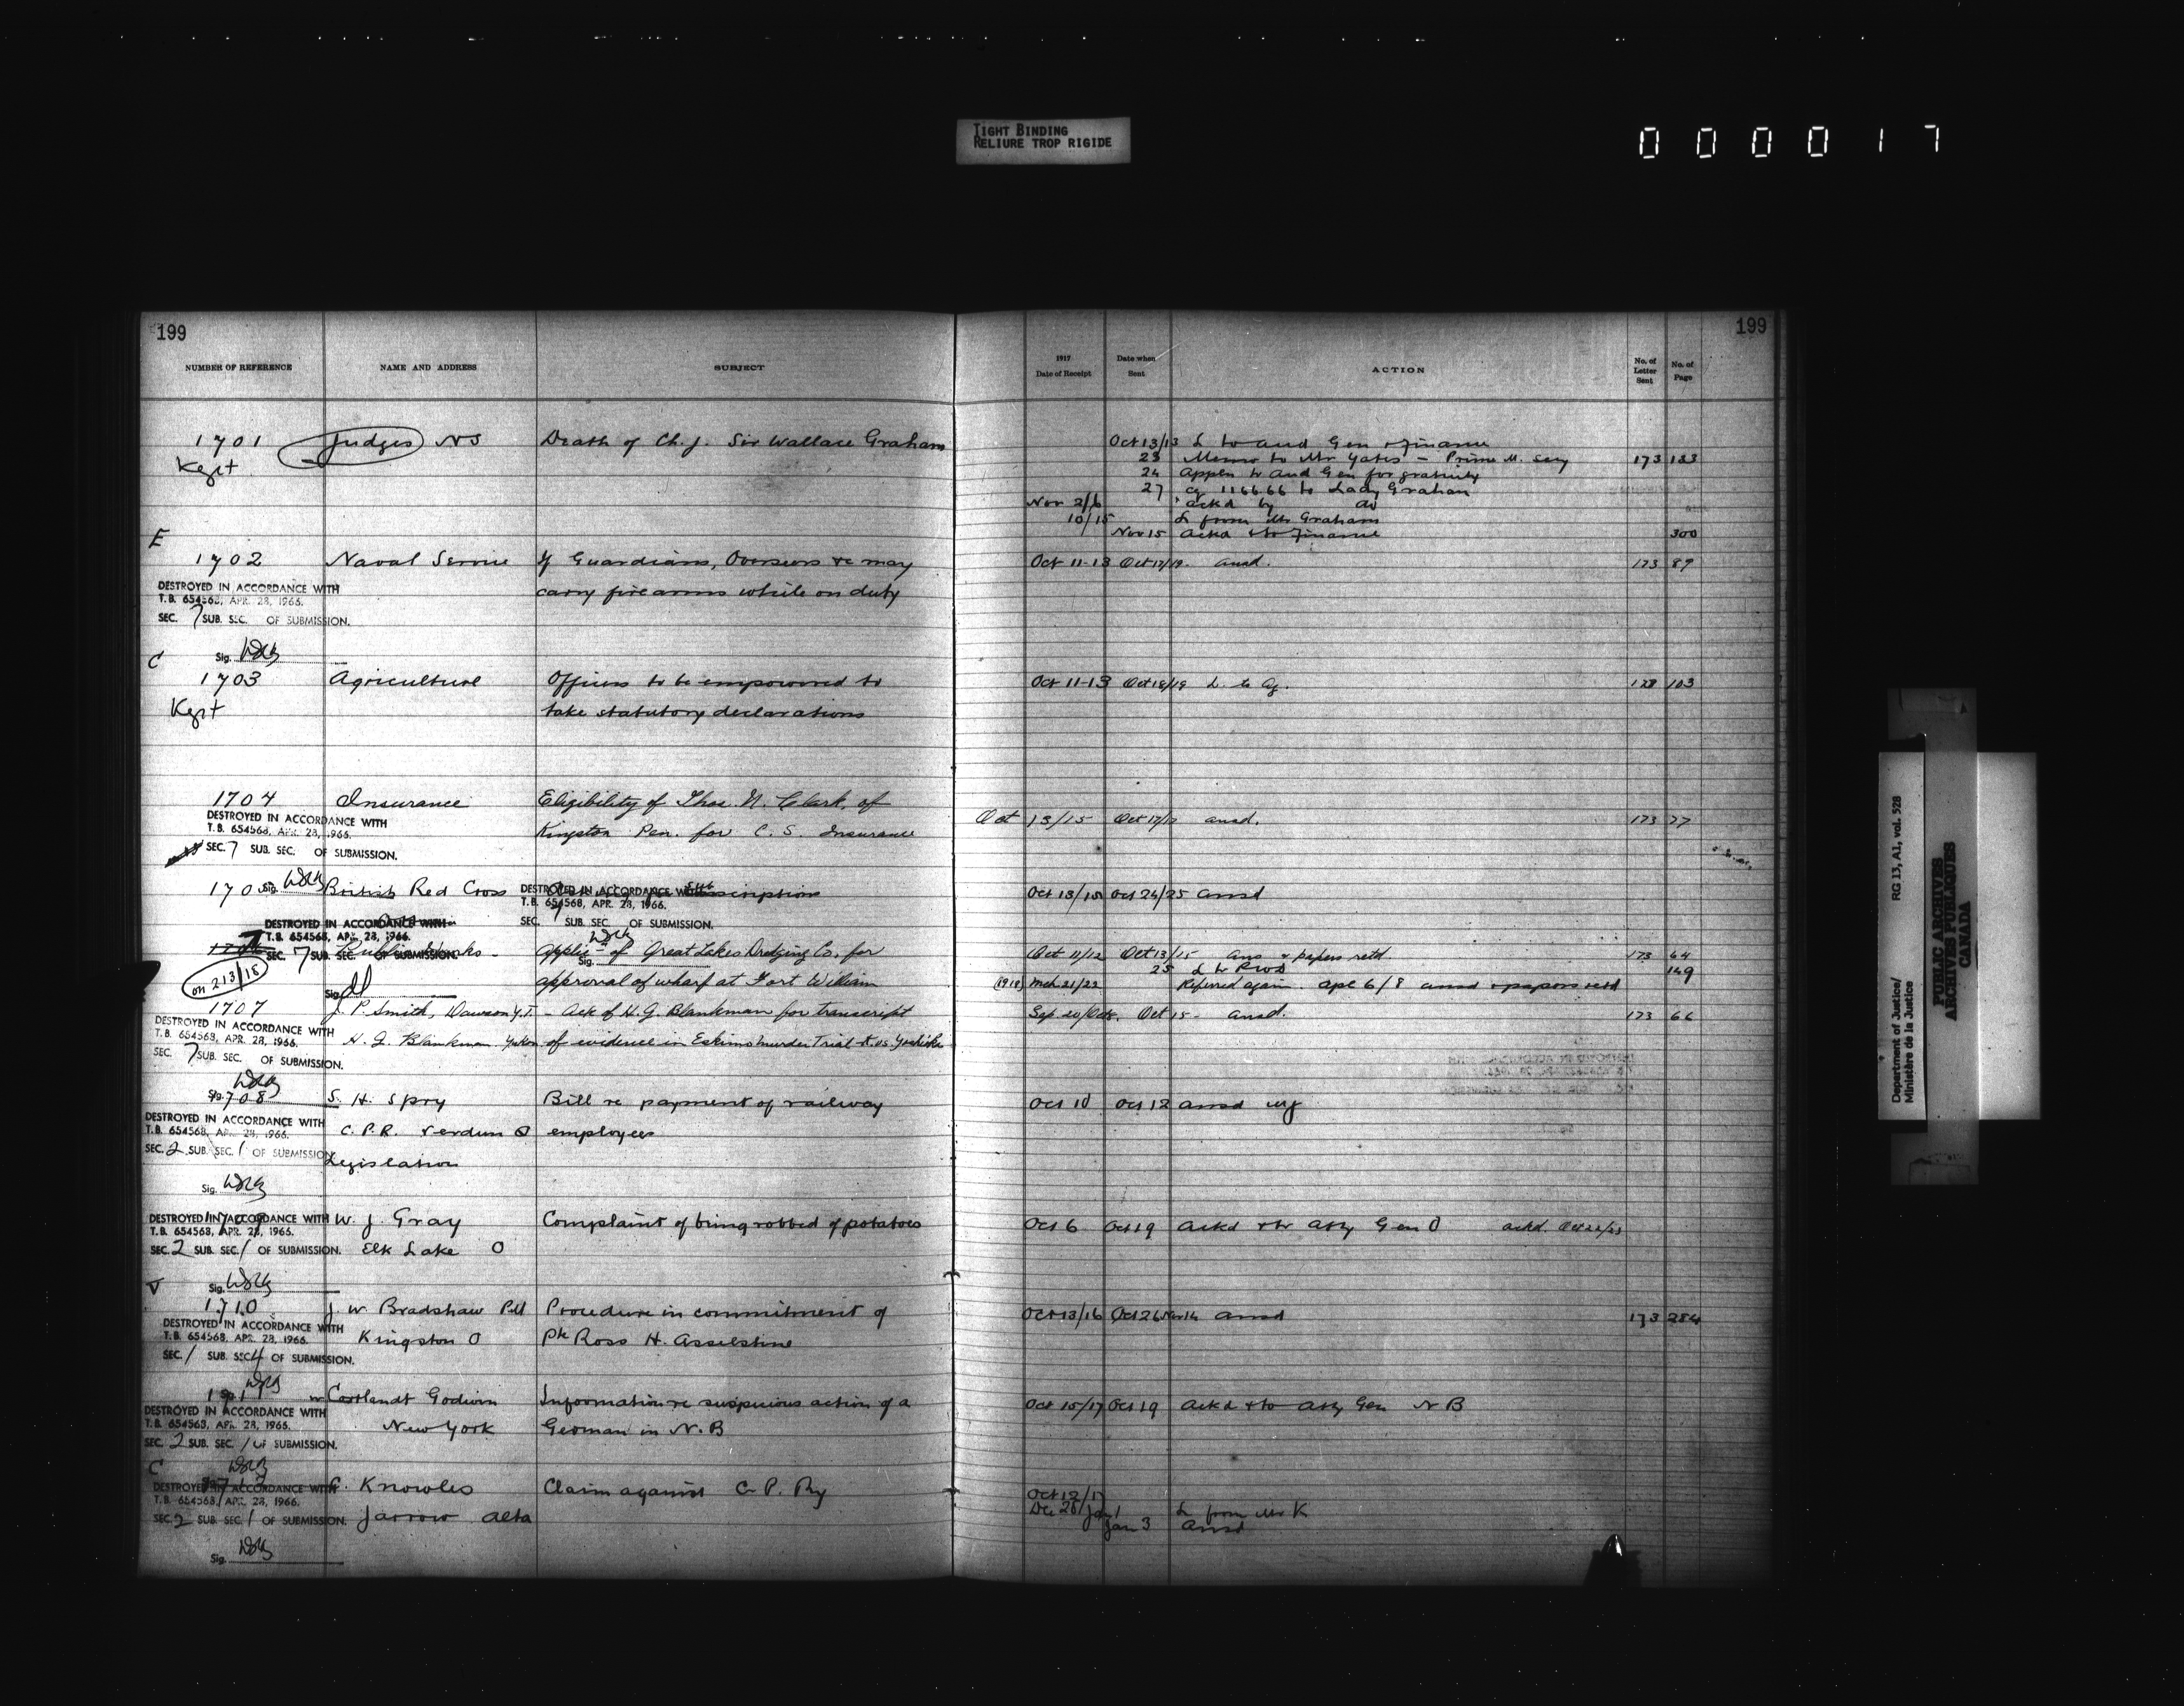 TIGHT BINDING
RELIURE TROP RIGIDE
0 0 0 0 1 7
199
NUMBER OF REFERENCE NAME AND ADDRESS SUBJECT
1701 Judges NS Death of Ch. J. Sir Wallace Graham
Kept
E
1702 Naval Service If Guardians, Overseers &c may
DESTROYED IN ACCORDANCE WITH
T.B. 654568, APR. 28, 1966. carry firearms while on duty
SEC. 7 SUB. SEC. OF SUBMISSION.
Sig.
C
1703 Agriculture Officers to be empowered to
Kept take statutory declarations
1704 Insurance Eligibility of Thos. N. Clark, of
DESTROYED IN ACCORDANCE WITH
T.B. 654568, APR. 28, 1966. Kingston Pen. for C. S. Insurance
SEC. 7 SUB. SEC. OF SUBMISSION.
170 Sig. British Red Cross DESTROYED IN ACCORDANCE WITH
T.B. 654568, APR. 28, 1966.
SEC. 7 SUB. SEC. OF SUBMISSION.
DESTROYED IN ACCORDANCE WITH
T.B. 654568, APR. 28, 1966.
SEC. 7 SUB. SEC. OF SUBMISSION.
Public Works - Applic of Great Lakes Dredging Co. for
Sig.
on 213/18 approval of wharf at Fort William
Sig.
1707 J. P. Smith, Dawson Y.T. - Ack of H. G. Blankman for transcript
DESTROYED IN ACCORDANCE WITH
T.B. 654568, APR. 28, 1966. H. G. Blankman Yukon of evidence in Eskimo murder Trial
SEC. 7 SUB. SEC. OF SUBMISSION.
Sig. 708 S. H. Spry Bill re payment of railway
DESTROYED IN ACCORDANCE WITH
T.B. 654568, APR. 28, 1966. C. P. R. Verdun Q employees
SEC. 2 SUB. SEC. 1 OF SUBMISSION
Legislation
Sig.
DESTROYED IN ACCORDANCE WITH W. J. Gray Complaint of being robbed of potatoes
T.B. 654568, APR. 28, 1966.
SEC. 2 SUB. SEC. 1 OF SUBMISSION. Elk Lake O
Sig.
1710 J. W. Bradshaw Procedure in commitment of
DESTROYED IN ACCORDANCE WITH
T.B. 654568, APR. 28, 1966. Kingston O Pte Ross H. Asselstine
SEC. 1 SUB. SEC. 4 OF SUBMISSION.
Cortlandt Godwin Information re suspicious action of a
DESTROYED IN ACCORDANCE WITH
T.B. 654568, APR. 28, 1966. New York German in N. B
SEC. 2 SUB. SEC. 1 OF SUBMISSION.
C
DESTROYED IN ACCORDANCE WITH Knowles Claim against C. P. Ry
T.B. 654568, APR. 28, 1966.
SEC. 2 SUB. SEC. 1 OF SUBMISSION. Jarrow Alta
Sig.
199
1917
Date of Receipt Date when Sent ACTION No. of Letter Sent No. of Page
Oct 13/13 L to Aud Gen & Finance
23 Memo to Mr Yates - Prime M. Secy 173 133
24 Appln to Aud Gen for gratuity
27 cq 1166 66 to Lady Graham
Nov 2/6 ackd by do
10/15 L from Mr Graham
Nov 15 Ackd & to Finance 300
Oct 11-13 Oct 17/19. ansd. 173 89
Oct 11-13 Oct 18/19 L to Ag. 173 103
Oct 13/15 Oct 17/17 ansd. 173 77
Oct 13/15 Oct 24/25 ansd
Oct 11/12 Oct 13/15 Ans & papers retd 173 64
25 L to PWD 149
(1918) Mch. 21/22 Referred again. Apl 6/8 ansd & papers retd
Sep 20/Oct 8. Oct 15 - ansd. 173 66
Oct 10 Oct 12 ansd
Oct 6 Oct 19 Ackd & to Atty Gen O ackd. Oct 22/23
Oct 13/16 Oct 26 Nov 14 ansd 173 284
Oct 15/17 Oct 19 Ackd & to Atty Gen N B
Oct 12/17
Dec 28/Jan 1 L from Mr K
Jan 3 Ansd
Department of Justice/ RG 13, A1, vol. 528
Ministère de la Justice
PUBLIC ARCHIVES
ARCHIVES PUBLIQUES
CANADA